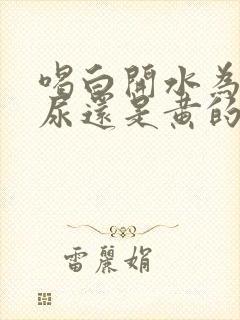 喝白開水為
尿還是黄的
雷麗娟